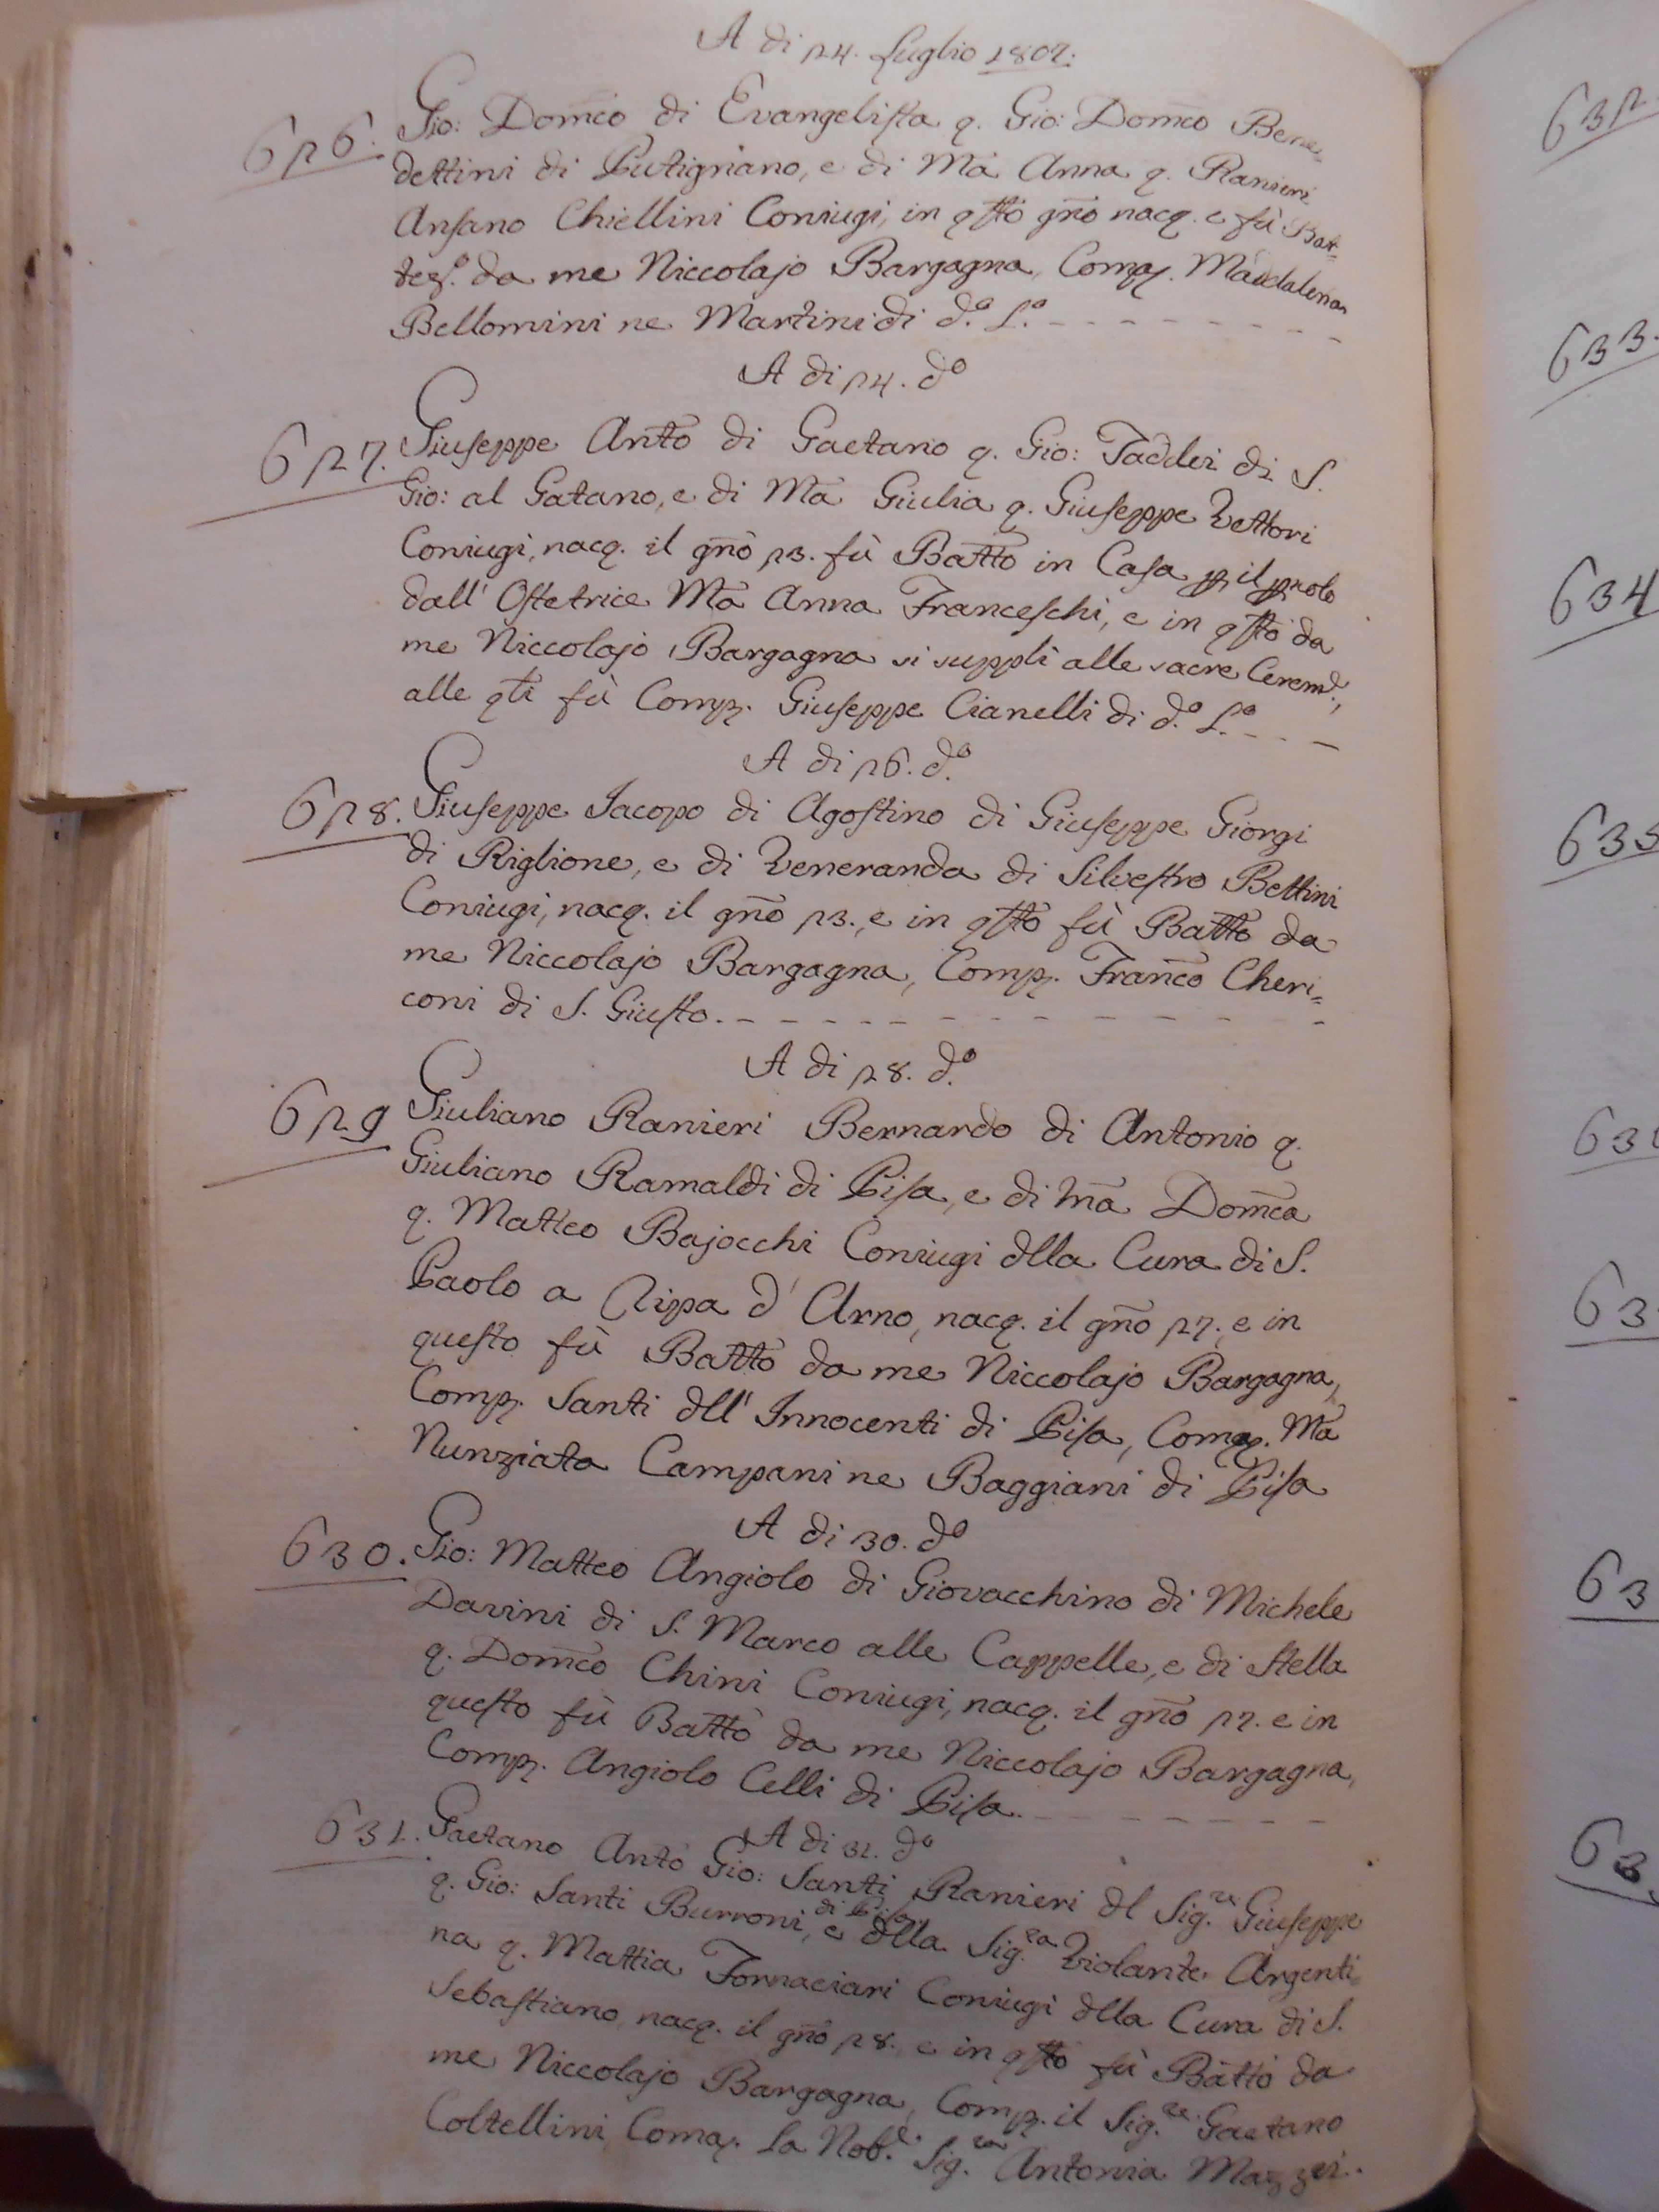 A di 24. Luglio 1802.
626. Gio: Dom̃co di Evangelista q. Gio: Dom̃co Bene=
dettini di Putignano, e di Mã Anna q. Ranieri
Ansano Chiellini Coniugi, in q̃sto gñno nacq. e fù Bat=
tez.º da me Niccolajo Bargagna, Comaȝ. Maddalena
Bellomini ne Martini di d.º L.º
A di 24. d.º
627. Giuseppe Antõ di Gaetano q. Gio: Taddei di S.
Gio: al Gatano, e di Mã Giulia q. Giuseppe Vettori
Coniugi, nacq. il gñno 23. fù Battõ in Casa ꝑ il ꝑicolo
dall' Ostetrice Mã Anna Franceschi, e in q̃sto da
me Niccolajo Bargagna si supplì alle sacre Cerem.e,
alle q̃li fù Comp. Giuseppe Cianelli di d.º L.º
A di 26. d.º
628. Giuseppe Jacopo di Agostino di Giuseppe Giorgi
di Riglione, e di Veneranda di Silvestro Bettini
Coniugi, nacq. il gñno 23., e in q̃sto fù Battõ da
me Niccolajo Bargagna, Comp. Francõ Cheri=
coni di S. Giusto.
A di 28. d.º
629 Giuliano Ranieri Bernardo di Antonio q.
Giuliano Ramaldi di Pisa, e di Mã Dom̃ca
q. Matteo Bajocchi Coniugi dlla Cura di S.
Paolo a Ripa d' Arno, nacq. il gñno 27., e in
questo fù Battõ da me Niccolajo Bargagna,
Comp. Santi dll' Innocenti di Pisa, Comaȝ. Mã
Nunziata Campani ne Baggiani di Pisa
A di 30. d.º
630. Gio: Matteo Angiolo di Giovacchino di Michele
Davini di S. Marco alle Cappelle, e di Stella
q. Dom̃co Chini Coniugi, nacq. il gñno 27. e in
questo fù Battõ da me Niccolajo Bargagna,
Comp. Angiolo Celli di Pisa.
A di 31. d.º
631. Gaetano Antõ Gio: Santi Ranieri dl Sig.re Giuseppe
q. Gio: Santi Burroni di Pisa, e dlla Sig.ra Violante Argenti=
na q. Mattia Fornaciari Coniugi dlla Cura di S.
Sebastiano, nacq. il gñno 28., e in q̃sto fù Battõ da
me Niccolajo Bargagna, Comp. il Sig.re Gaetano
Coltellini, Comaȝ. La Nob.e Sig.ra Antonia Mazzei.
632
633.
634
635
63
63
63
63